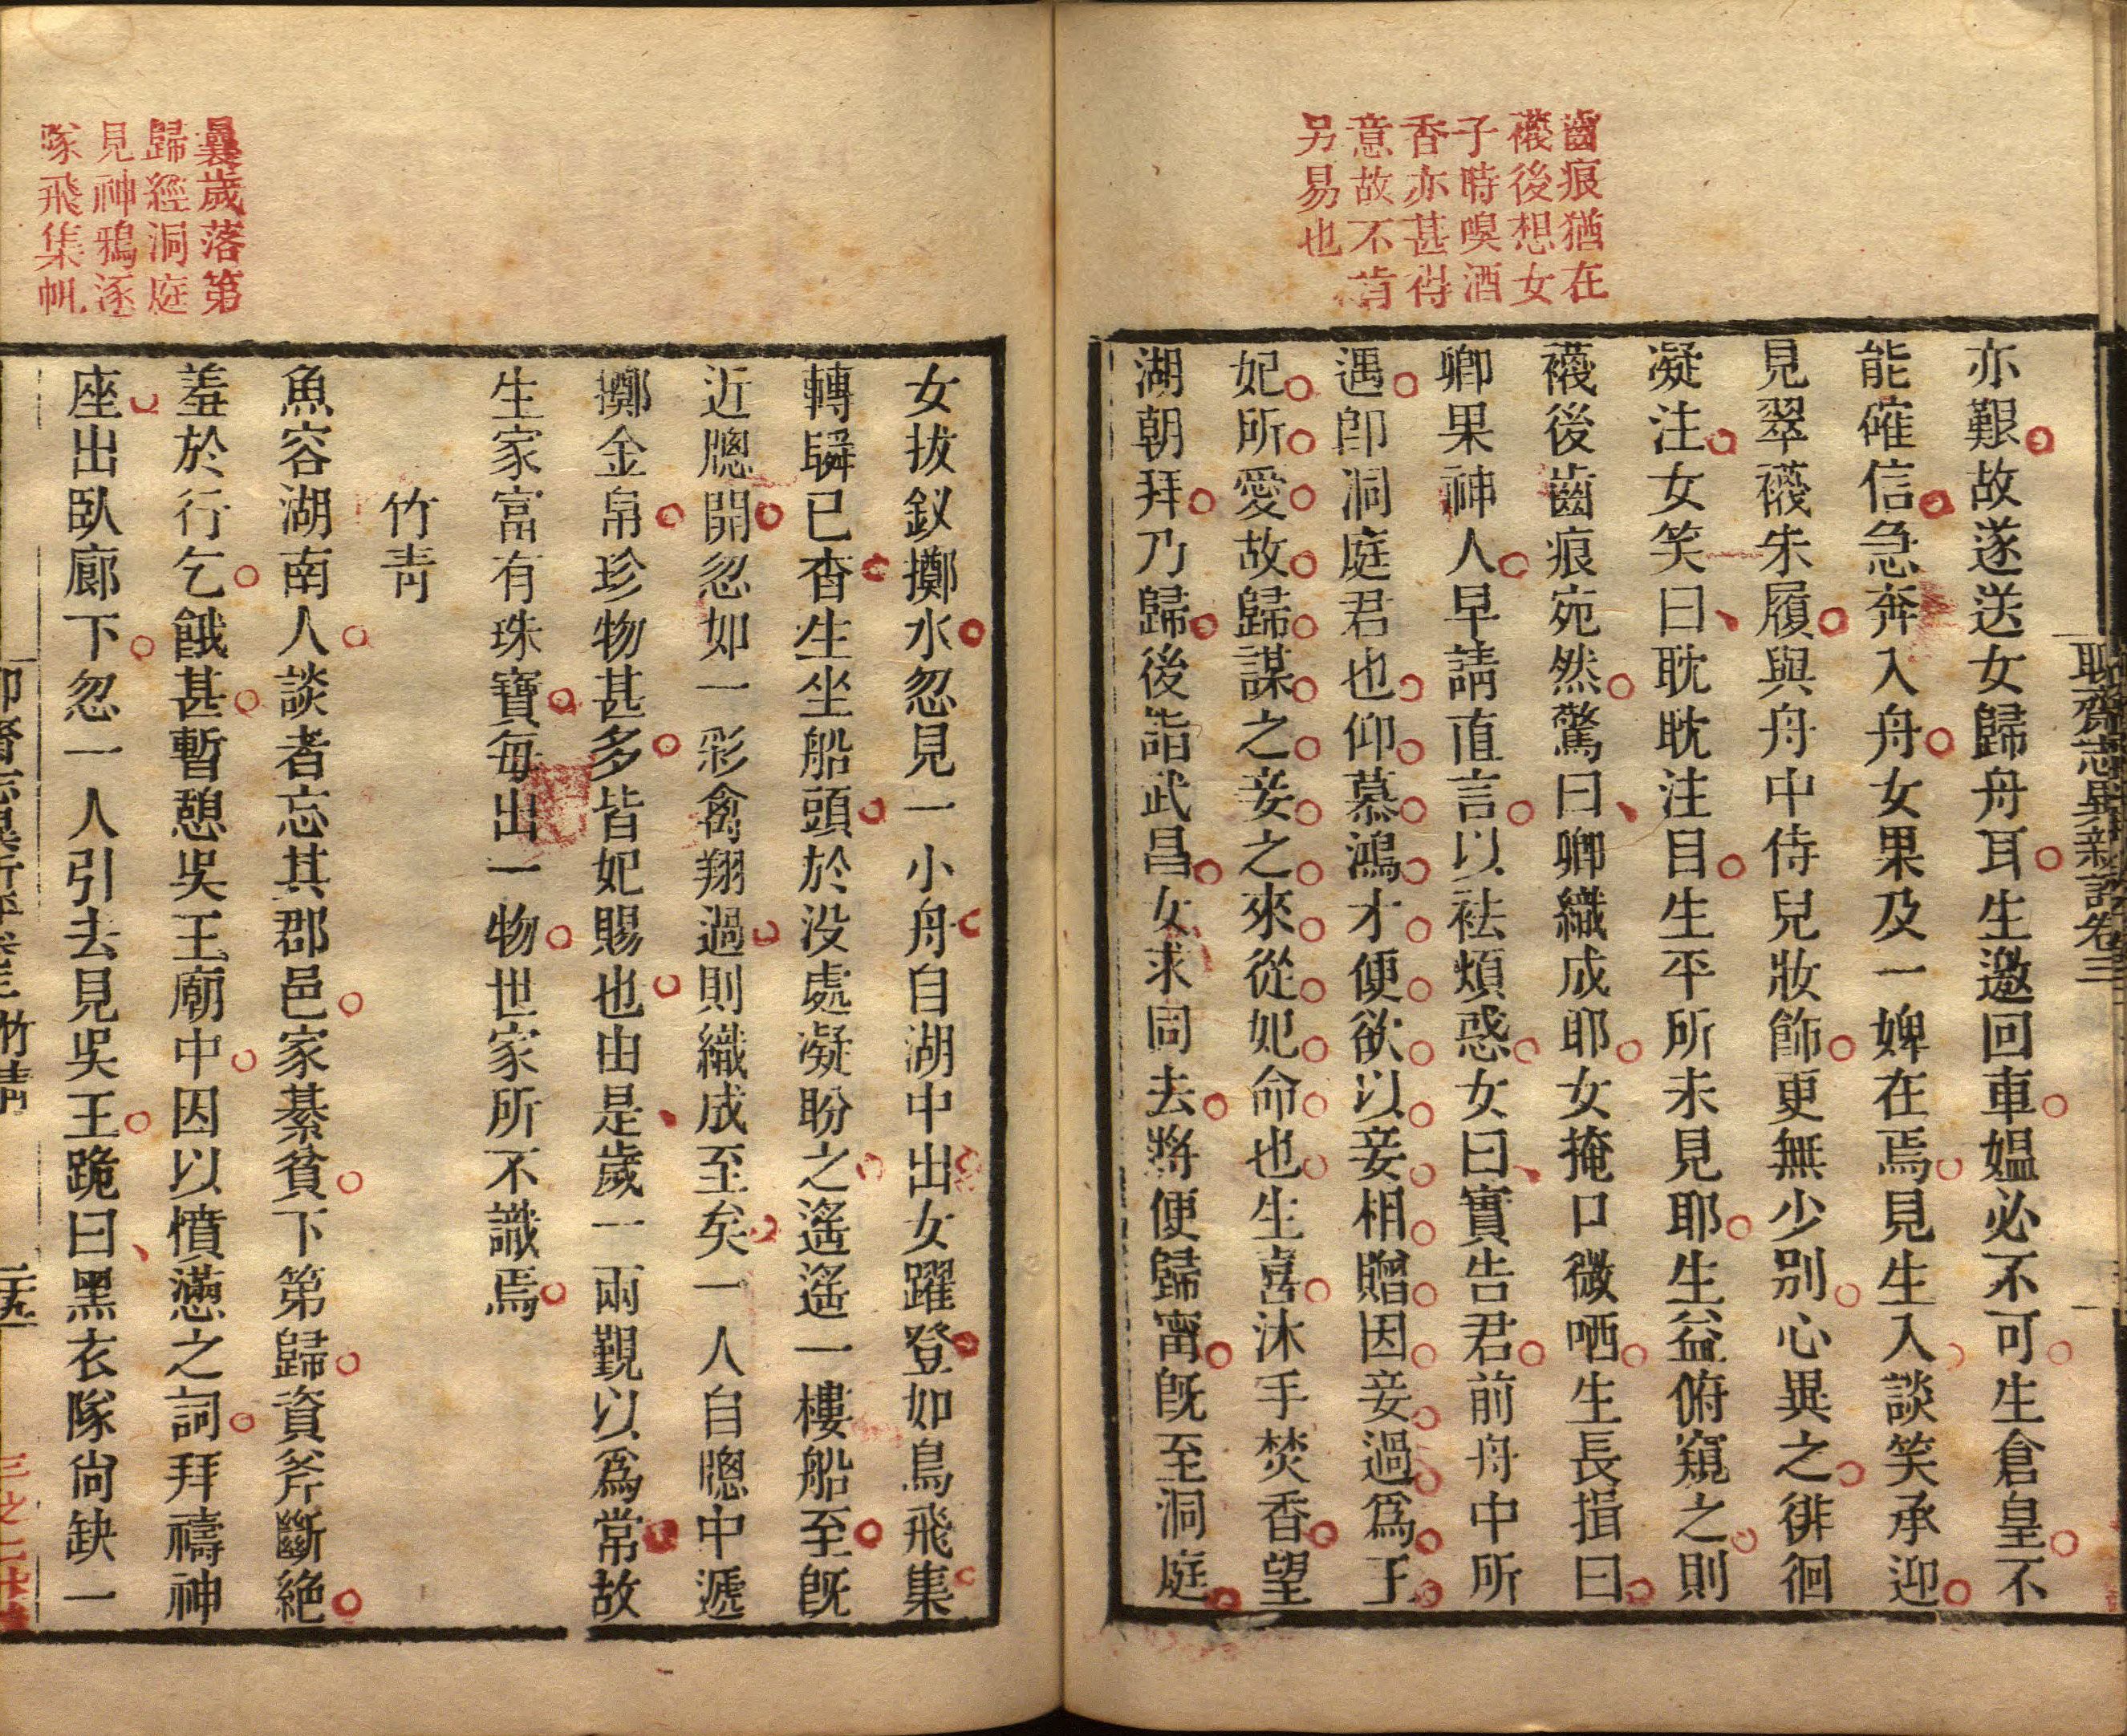 聊齋志異新評卷三
齒痕猶在
襪後想女
子時嗅酒
香亦甚得
意故不肯
另易也
亦艱故遂送女歸舟耳生邀回車媼必不可生倉皇不
能確信急奔入舟女果及一婢在焉見生入談笑承迎
見翠襪朱履與舟中侍兒妝飾更無少別心異之徘徊
凝注女笑曰耽耽注目生平所未見耶生益俯窺之則
襪後齒痕宛然驚曰卿織成耶女掩口微哂生長揖曰
卿果神人早請直言以袪煩惑女曰實告君前舟中所
遇卽洞庭君也仰慕鴻才便欲以妾相贈因妾過爲王
妃所愛故歸謀之妾之來從妃命也生喜沐手焚香望
湖朝拜乃歸後詣武昌女求同去將便歸甯旣至洞庭
曩歲落第
歸經洞庭
見神鴉逐
隊飛集帆
女拔釵擲水忽見一小舟自湖中出女躍登如鳥飛集
轉瞬已杳生坐船頭於没處凝盼之遙遙一樓船至旣
近牕開忽如一彩禽翔過則織成至矣一人自牕中遞
擲金帛珍物甚多皆妃賜也由是歲一兩覲以爲常故
生家富有珠寶每出一物世家所不識焉
竹青
魚容湖南人談者忘其郡邑家綦貧下第歸資斧斷絶
羞於行乞餓甚暫憩吳王廟中因以憤懣之詞拜禱神
座出臥廊下忽一人引去見吳王跪曰黑衣隊尙缺一